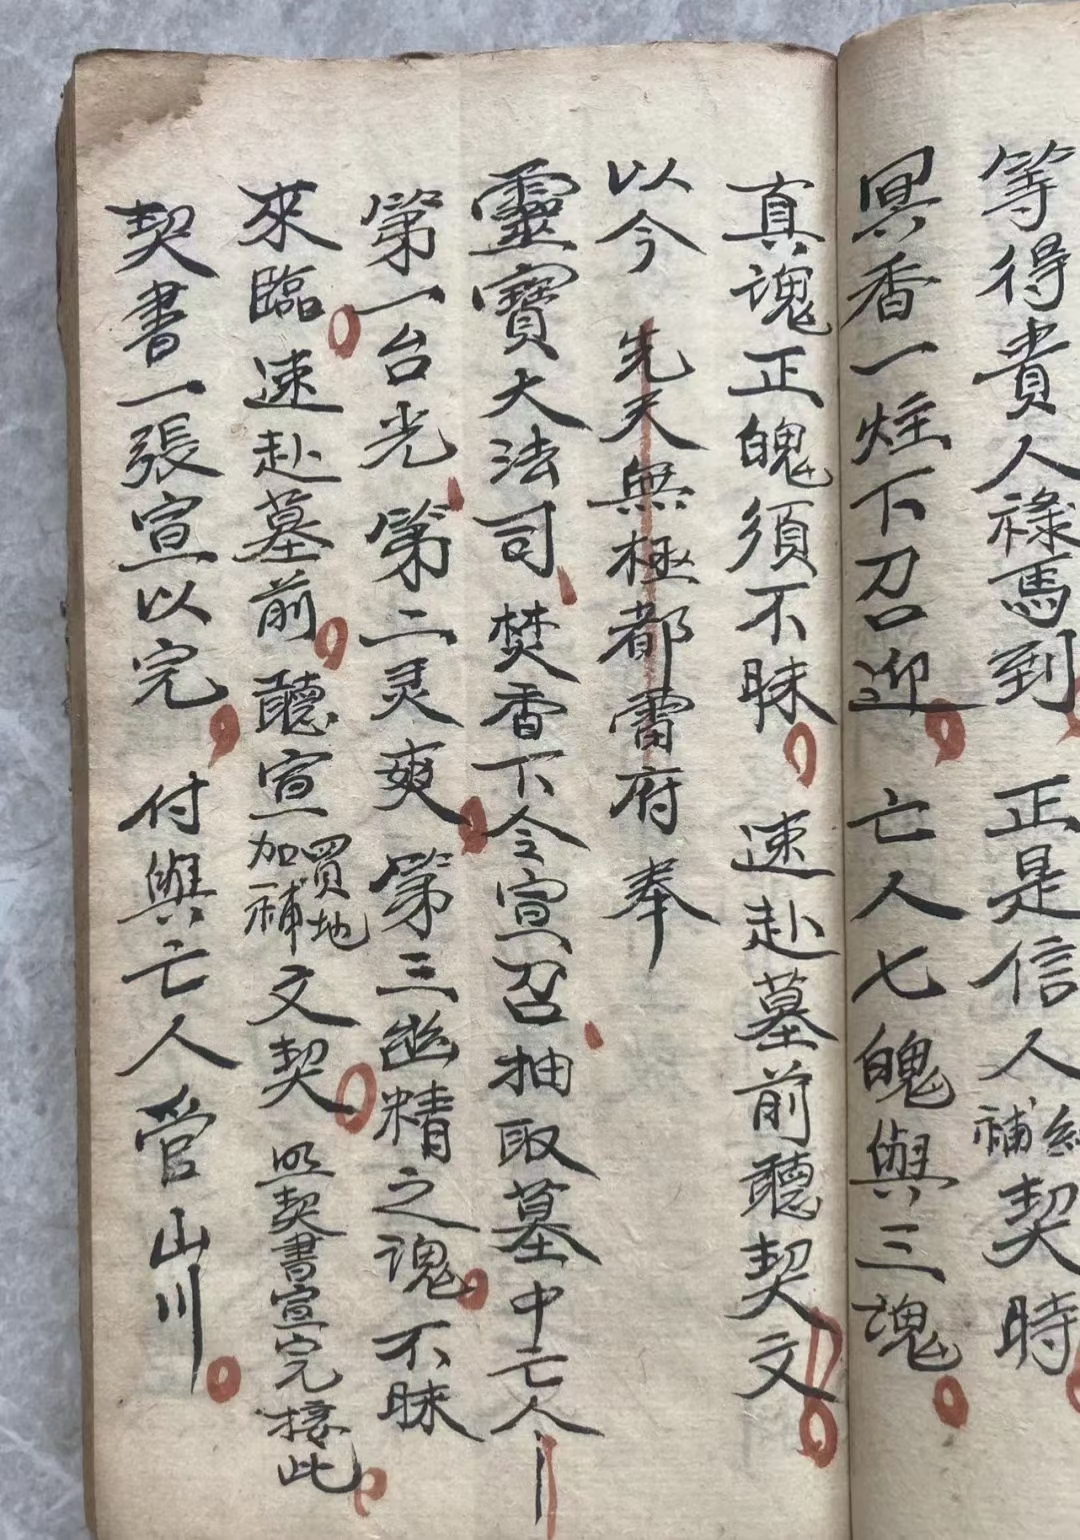 等得貴人祿馬到 正是信人補契時
冥香一炷下召迎 亡人七魄與三魂
真魂正魄須不昧 速赴墓前聽契文
以今 先天無極都雷府 奉
靈寶大法司 焚香下令宣召抽取墓中亡人
第一台光 第二灵爽 第三幽精之魂 不昧
來臨 速赴墓前 聽宣買地加補文契 照契書宣完接此
契書一張宣以完 付與亡人管山川